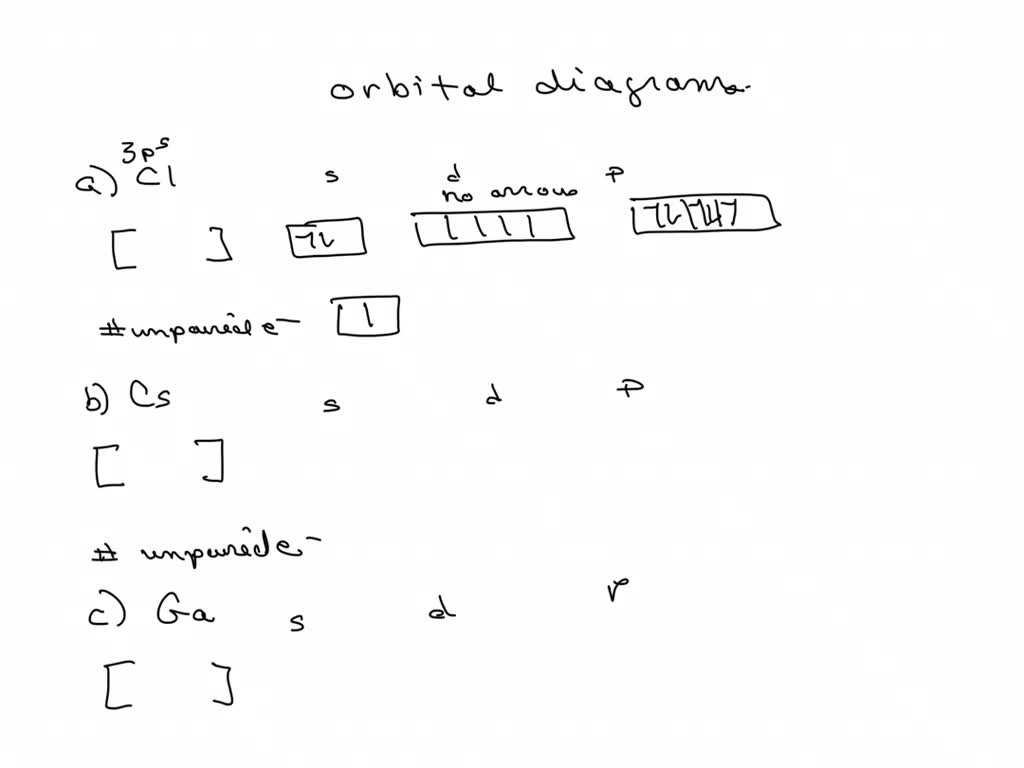 orbital diagrams.
3p5
a) Cl s d p
no arrows
[ ] 1L 1L 1L 1
# unpaired e- 1
b) Cs s d p
[ ]
# unpaired e-
c) Ga s d p
[ ]